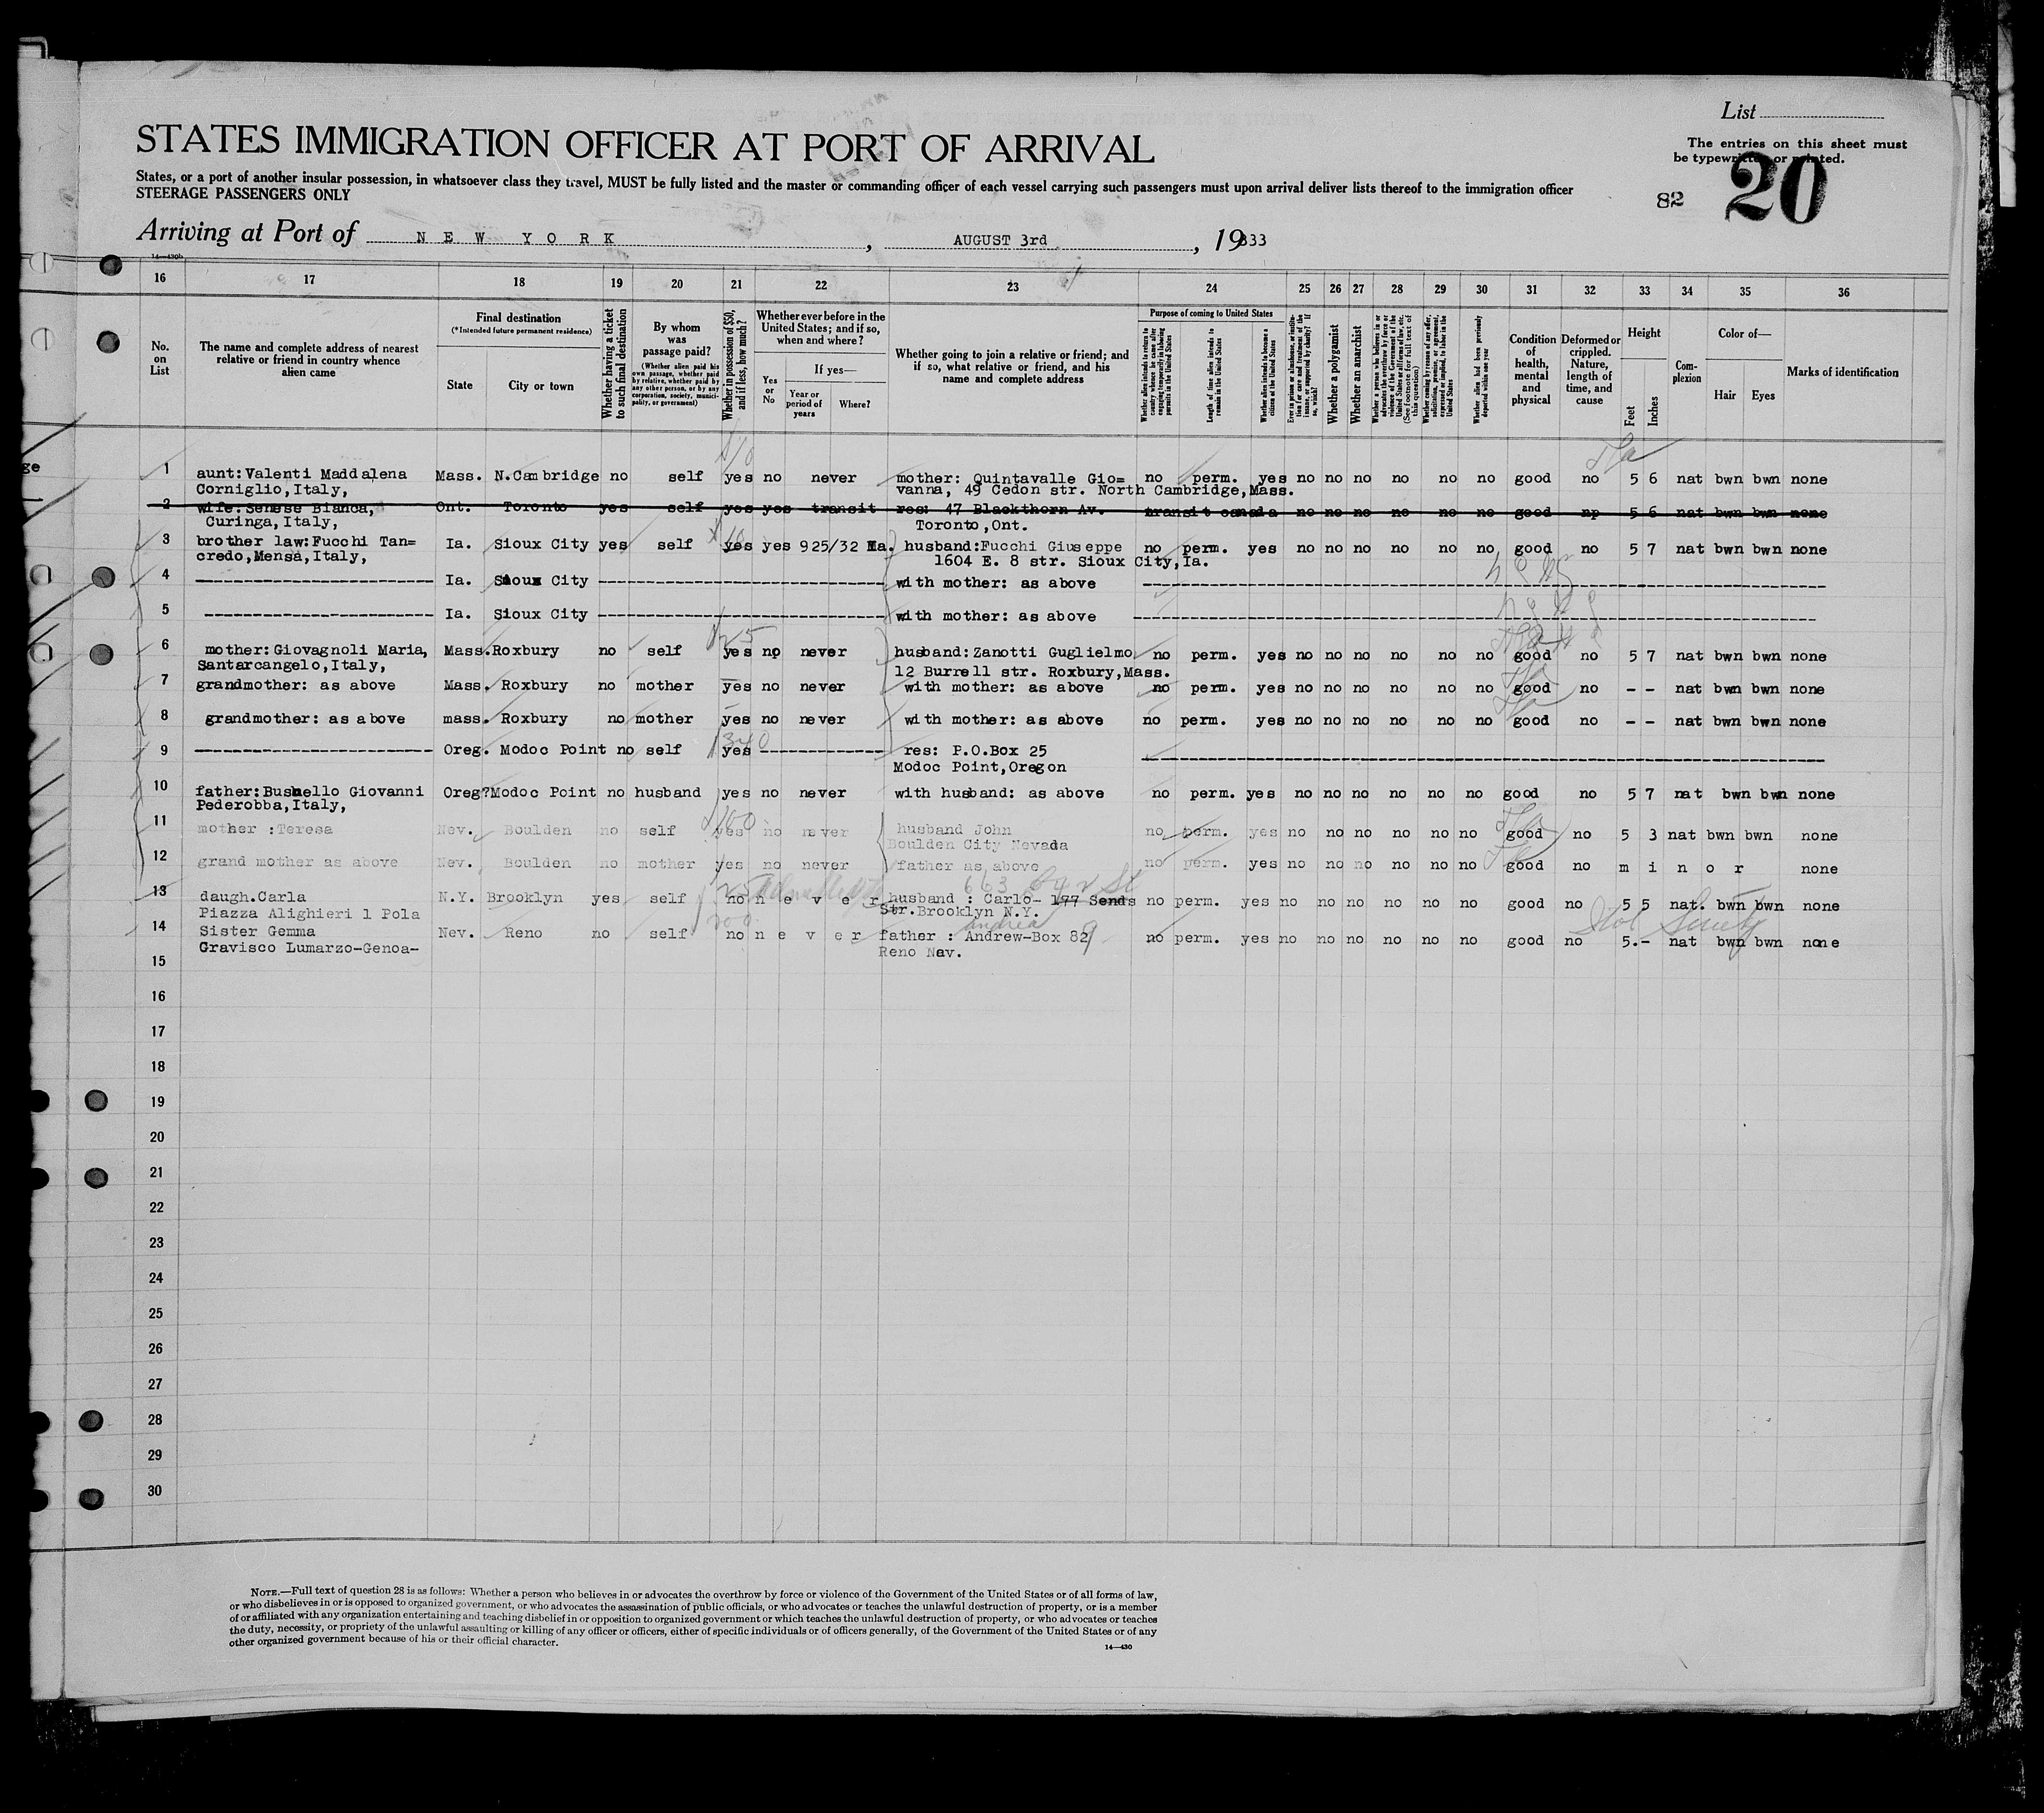 List
STATES IMMIGRATION OFFICER AT PORT OF ARRIVAL
The entries on this sheet must
be typewritten or printed.
States, or a port of another insular possession, in whatsoever class they travel, MUST be fully listed and the master or commanding officer of each vessel carrying such passengers must upon arrival deliver lists thereof to the immigration officer
STEERAGE PASSENGERS ONLY
82 20
Arriving at Port of NEW YORK, AUGUST 3rd, 19333
14—430b
16 17 18 19 20 21 22 23 24 25 26 27 28 29 30 31 32 33 34 35 36
No. on List
The name and complete address of nearest relative or friend in country whence alien came
Final destination
(*Intended future permanent residence)
State
City or town
Whether having a ticket to such final destination
By whom was passage paid?
(Whether alien paid his own passage, whether paid by relative, whether paid by any other person, or by any corporation, society, municipality, or government)
Whether in possession of $50, and if less, how much?
Whether ever before in the United States; and if so, when and where?
Yes or No
If yes—
Year or period of years
Where?
Whether going to join a relative or friend; and if so, what relative or friend, and his name and complete address
Purpose of coming to United States
Whether alien intends to return to country whence he came after engaging temporarily in laboring pursuits in the United States
Length of time alien intends to remain in the United States
Whether alien intends to become a citizen of the United States
Ever in prison or almshouse, or institution for care and treatment of the insane, or supported by charity? If so, which?
Whether a polygamist
Whether an anarchist
(See footnote for full text of this question)
Whether coming by reason of any offer, solicitation, promise, or agreement, expressed or implied, to labor in the United States
Whether alien had been previously deported within one year
Condition of health, mental and physical
Deformed or crippled. Nature, length of time, and cause
Height
Feet
Inches
Complexion
Color of—
Hair
Eyes
Marks of identification
1 aunt:Valenti Maddalena Mass. N.Cambridge no self yes no never mother: Quintavalle Gio= no perm. yes no no no no no no good no 5 6 nat bwn bwn none
Corniglio,Italy, vanna, 49 Cedon str. North Cambridge,Mass.
2 wife:Senese Bianca, Ont. Toronto yes self yes yes transit res: 47 Blackthorn Av. transit canada no no no no no no good no 5 6 nat bwn bwn none
Curinga,Italy, Toronto,Ont.
3 brother law:Fucchi Tan= Ia. Sioux City yes self yes yes 925/32 Ia. husband:Fucchi Giuseppe no perm. yes no no no no no no good no 5 7 nat bwn bwn none
credo,Mensa,Italy, 1604 E. 8 str. Sioux City,Ia.
4 Ia. Sioux City with mother: as above
5 Ia. Sioux City with mother: as above
6 mother:Giovagnoli Maria, Mass. Roxbury no self yes no never husband:Zanotti Guglielmo no perm. yes no no no no no no good no 5 7 nat bwn bwn none
Santarcangelo,Italy, 12 Burrell str. Roxbury,Mass.
7 grandmother: as above Mass. Roxbury no mother yes no never with mother: as above no perm. yes no no no no no no good no - - nat bwn bwn none
8 grandmother: as above mass. Roxbury no mother yes no never with mother: as above no perm. yes no no no no no no good no - - nat bwn bwn none
9 Oreg. Modoc Point no self yes res: P.O.Box 25
Modoc Point,Oregon
10 father:Bushello Giovanni Oreg? Modoc Point no husband yes no never with husband: as above no perm. yes no no no no no no good no 5 7 nat bwn bwn none
Pederobba,Italy,
11 mother :Teresa Nev. Boulden no self yes no never husband John no perm. yes no no no no no no good no 5 3 nat bwn bwn none
Boulden City Nevada
12 grand mother as above Nev. Boulden no mother yes no never father as above no perm. yes no no no no no no good no minor none
663
13 daugh.Carla N.Y. Brooklyn yes self no never husband : Carlo- 177 Sends no perm. yes no no no no no no good no 5 5 nat. bwn bwn none
Piazza Alighieri 1 Pola Str.Brooklyn N.Y.
andrea
14 Sister Gemma Nev. Reno no self no never father : Andrew-Box 829 no perm. yes no no no no no no good no 5.- nat bwn bwn none
Gravisco Lumarzo-Genoa- Reno Nav.
15
16
17
18
19
20
21
22
23
24
25
26
27
28
29
30
NOTE.—Full text of question 28 is as follows: Whether a person who believes in or advocates the overthrow by force or violence of the Government of the United States or of all forms of law,
or who disbelieves in or is opposed to organized government, or who advocates the assassination of public officials, or who advocates or teaches the unlawful destruction of property, or is a member
of or affiliated with any organization entertaining and teaching disbelief in or opposition to organized government or which teaches the unlawful destruction of property, or who advocates or teaches
the duty, necessity, or propriety of the unlawful assaulting or killing of any officer or officers, either of specific individuals or of officers generally, of the Government of the United States or of any
other organized government because of his or their official character.
14—430